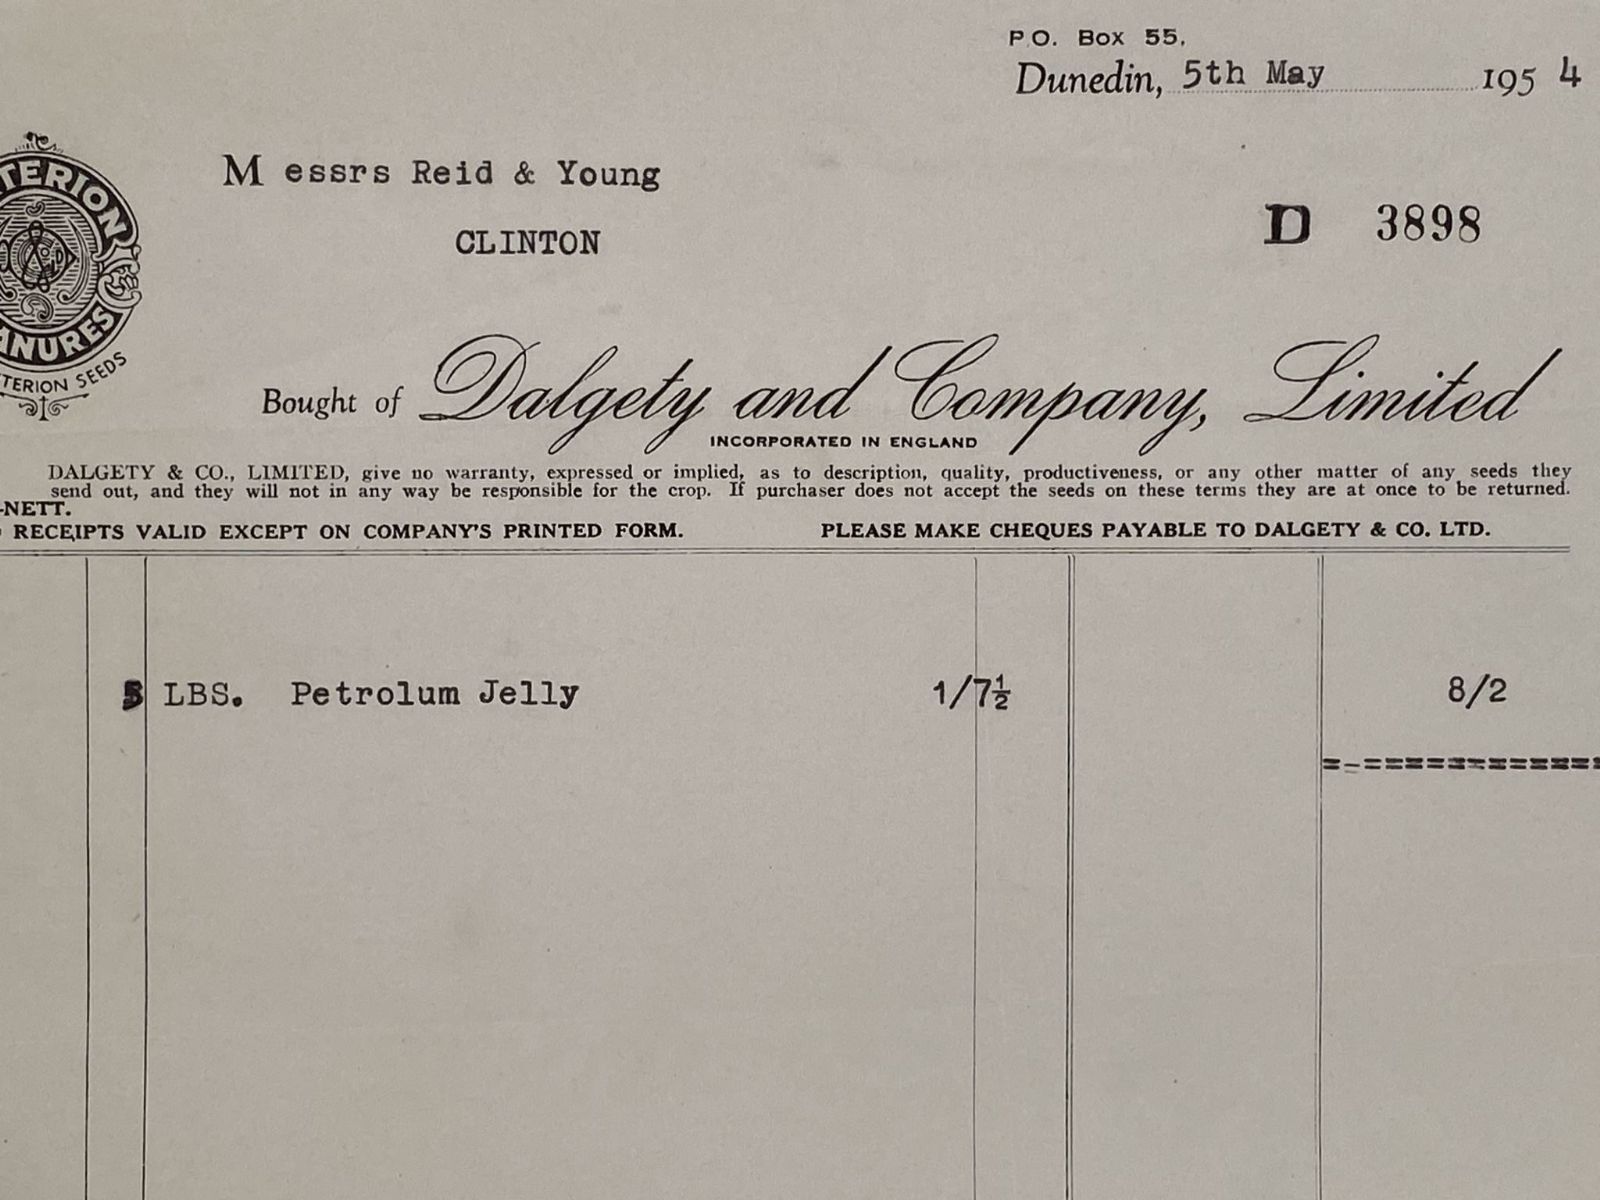 P.O. Box 55,
Dunedin, 5th May 195 4
M essrs Reid & Young
CLINTON
D 3898
TERION
ANURES
TERION SEEDS
Bought of Dalgety and Company, Limited
INCORPORATED IN ENGLAND
DALGETY & CO., LIMITED, give no warranty, expressed or implied, as to description, quality, productiveness, or any other matter of any seeds they
send out, and they will not in any way be responsible for the crop. If purchaser does not accept the seeds on these terms they are at once to be returned.
-NETT.
RECEIPTS VALID EXCEPT ON COMPANY'S PRINTED FORM. PLEASE MAKE CHEQUES PAYABLE TO DALGETY & CO. LTD.
5 LBS. Petrolum Jelly 1/7½ 8/2